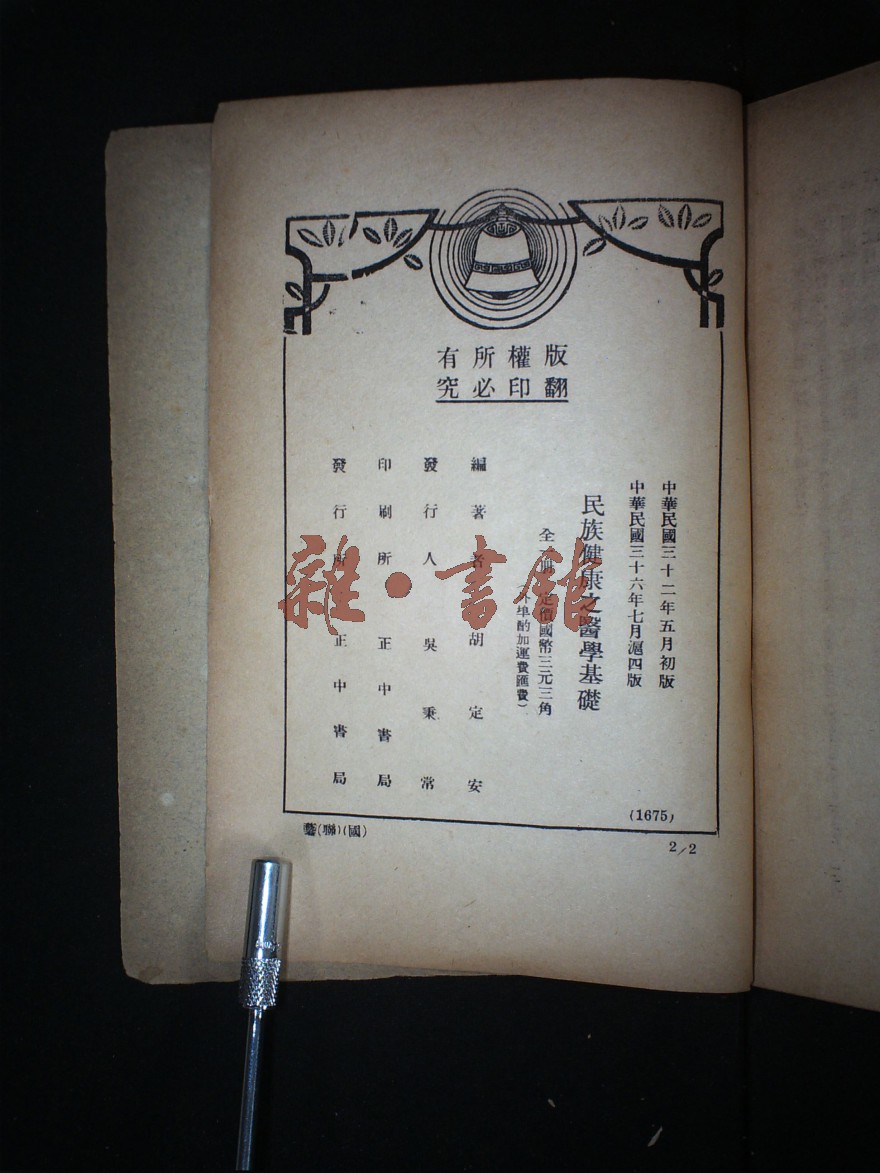 版權所有
翻印必究
中華民國三十二年五月初版
中華民國三十六年七月滬四版
民族健康之醫學基礎
全一冊 定價國幣三元三角
外埠酌加運費匯費）
編著者 胡定安
發行人 吳秉常
印刷所 正中書局
發行所 正中書局
(1675)
(聯)(國)
2/2
雜·書館